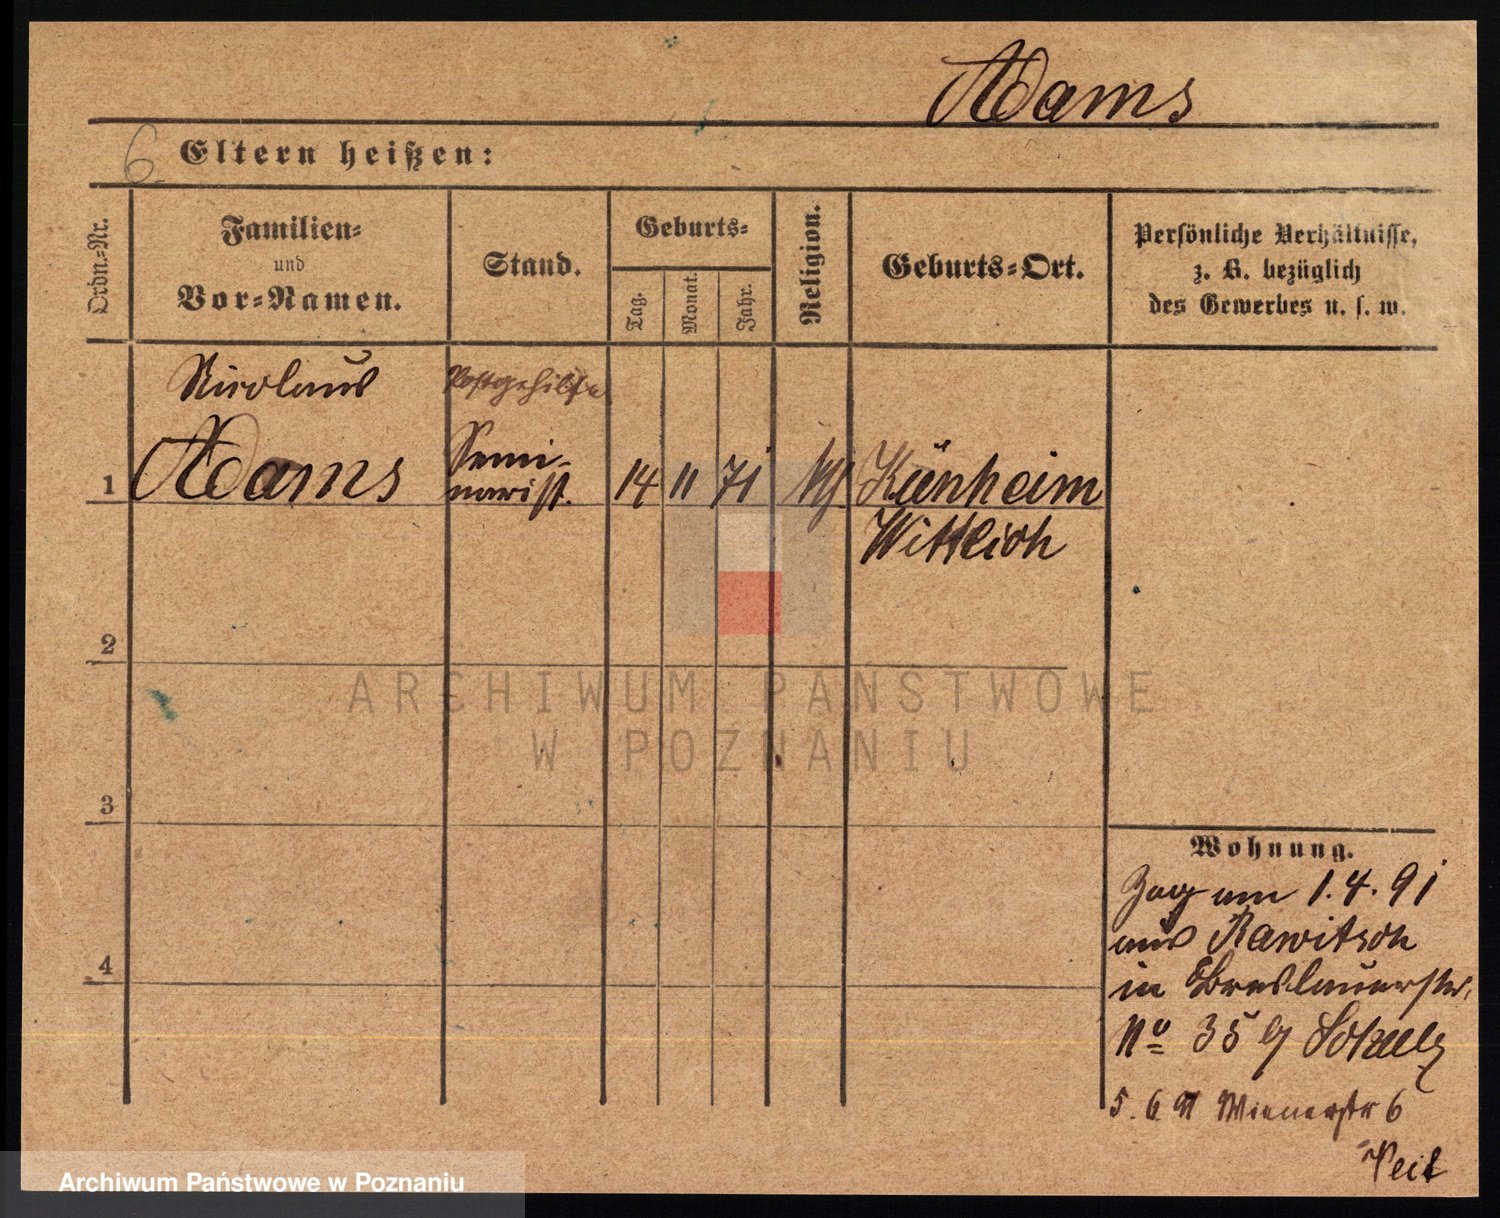 Adams
6.
Eltern heißen:
Ordn.-Nr.
Familien-
und
Vor-Namen.
Stand.
Geburts-
Tag.
Monat.
Jahr.
Religion.
Geburts-Ort.
Persönliche Verhältnisse,
z. B. bezüglich
des Gewerbes u. s. w.
Nicolaus
Postgehilfe
1 Adams
Semi-
narist.
14 11 71
Künheim
Wittlich
2
3
4
ARCHIWUM PAŃSTWOWE
W POZNANIU
Wohnung.
Zog am 1.4.91
aus Rawitsch
in Breslauerstr.
No 35
5.6.91 Wienerstr 6
Archiwum Państwowe w Poznaniu